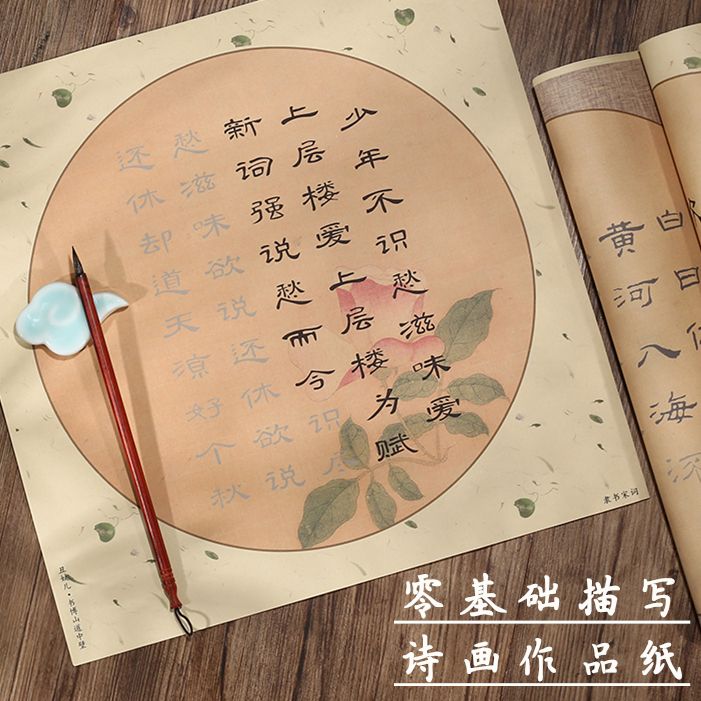 少年不识愁滋味爱
上层楼爱上层楼为赋
新词强说愁而今识尽
愁滋味欲说还休欲说
还休却道天凉好个秋
丑奴儿·书博山道中壁
隶书宋词
白日依
黄河入海流
零基础描写
诗画作品纸